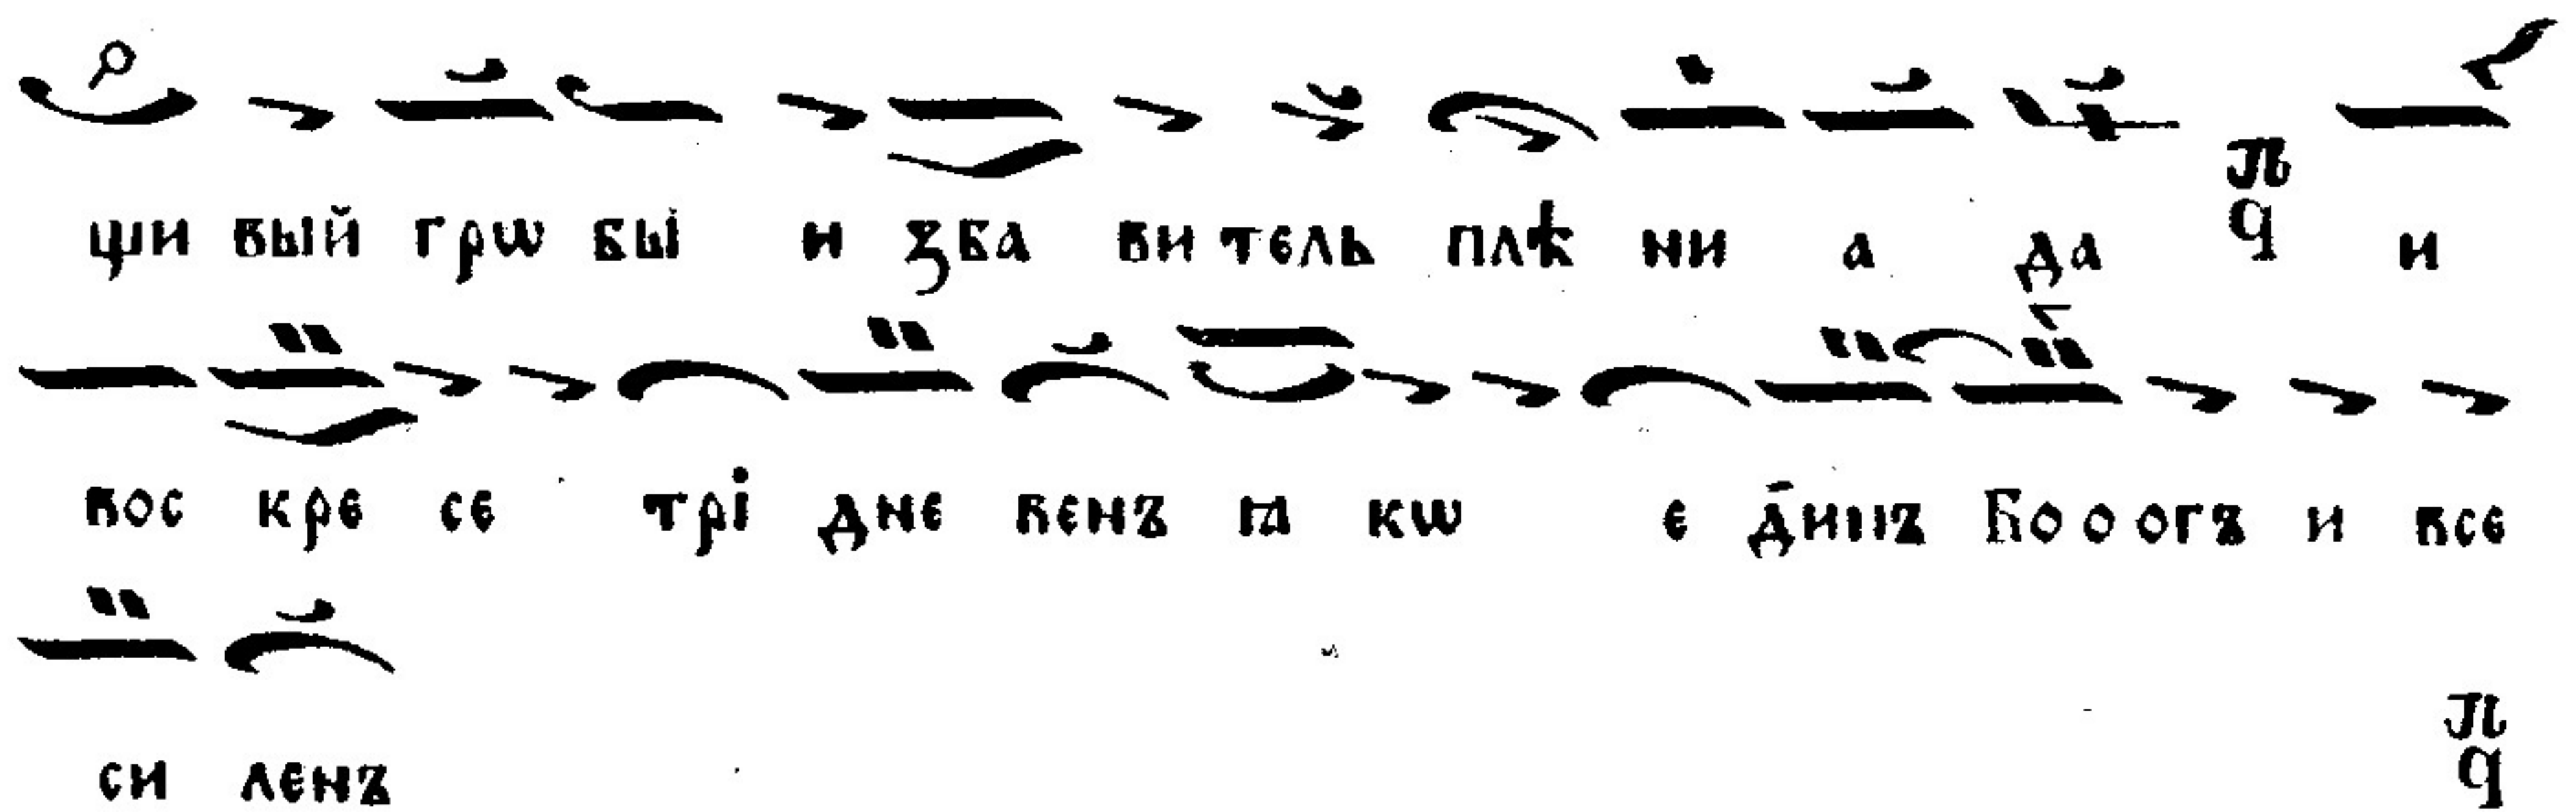 щи вый грѡ бы и зба ви тель плѣ ни а да Пꙋ҃ q и
вос кре се трі дне венъ ꙗ кѡ е д̄инъ Бо о огъ и все
си ленъ